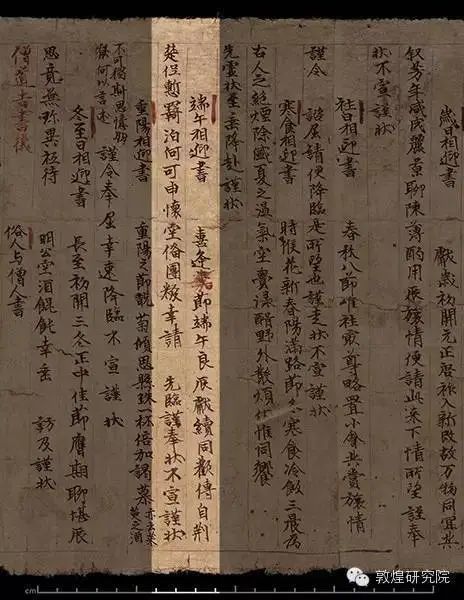 歲日相迎書 獻歲初開元正啓祚入新改故万物同宜共
叙芳年咸成麗景聊陳薄酌用展旅情便請此來下情所望謹奉
狀不宣謹狀
社日相迎書 春秋八節唯社最尊略置小會共賞旅情
謹令 諮屈請便降臨是所望也謹走狀不宣謹狀
寒食相迎書 時候花新春陽滿路節名寒食冷飯三晨爲
古人之絶煙除盛夏之温氣空賷渌醑野外散煩伏惟同饗
先靈狀至垂降赴謹狀
端午相迎書 喜逢嘉節端午良辰獻續同歡傳自荆
楚但慙羇泊何可申懷空俻團粽幸請 先臨謹奉狀不宣謹狀
重陽相迎書 重陽之節翫菊傾思 一杯倍加謁慕
不可獨斯思憶朋寮何以言述 謹令奉屈幸速降臨不宣 謹狀
冬至日相迎書 長至初開三冬正中佳節膺期聊堪展
思竟無珍異祗待 明公空酒餛飩幸垂 訪及謹狀
僧道書書儀 俗人与僧人書
cm
敦煌研究院